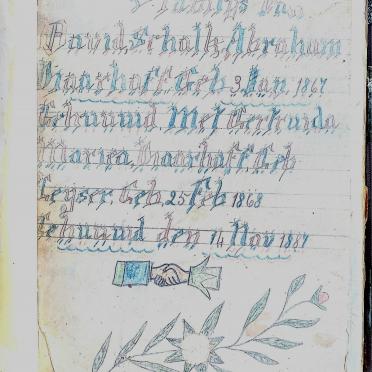 David Schalk Abraham
Naarhoff Geb 3 Jan. 1867
Gehuuwd Met Gertruida
Maria Naarhoff Geb
Keyser Geb 25 Feb 1868
Gehuuwd den 14 Nov 1887